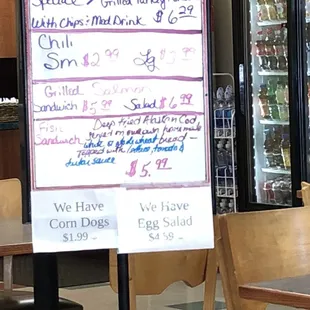 Grilled Turkey
With Chips & Med Drink $6.39
Chili
Sm $2.99 Lg $3.99
Grilled Salmon
Sandwich $5.99 Salad $6.99
Fish Deep fried Alaskan Cod,
Sandwich served on our own homemade
white or wheat bread -
topped with lettuce, tomato &
tartar sauce
$5.99
We Have
Corn Dogs
$1.99 -
We Have
Egg Salad
$4.59 -